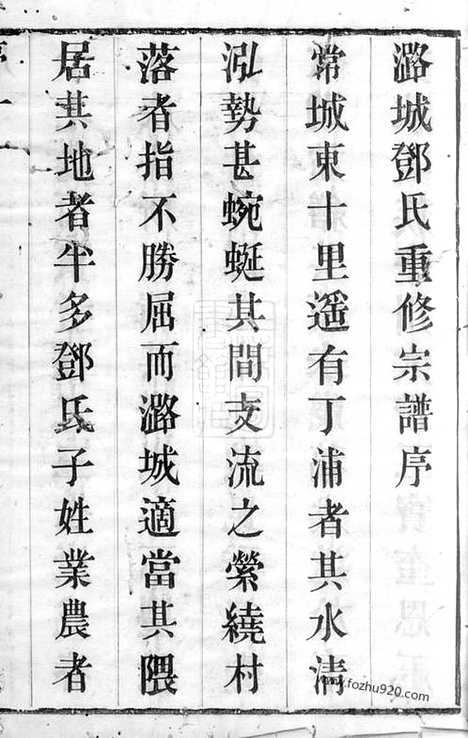 潞城鄧氏重修宗譜序
常城東十里遥有丁浦者其水清
泓勢甚蜿蜒其間支流之縈繞村
落者指不勝屈而潞城適當其隈
居其地者半多鄧氏子姓業農者
www.fozhu920.com